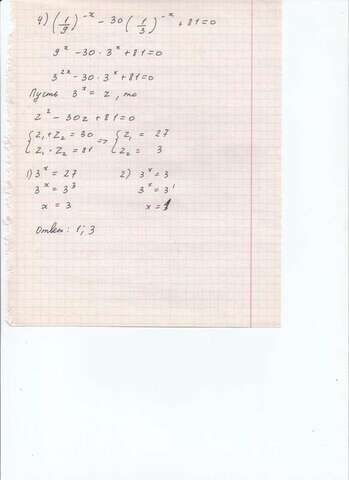 4) (1/9)^-x - 30 (1/3)^-x + 81 = 0
9^x - 30 · 3^x + 81 = 0
3^2x - 30 · 3^x + 81 = 0
Пусть 3^x = z, то
z^2 - 30z + 81 = 0
{ z1 + z2 = 30 => { z1 = 27
{ z1 · z2 = 81 { z2 = 3
1) 3^x = 27 2) 3^x = 3
3^x = 3^3 3^x = 3^1
x = 3 x = 1
Ответ: 1; 3